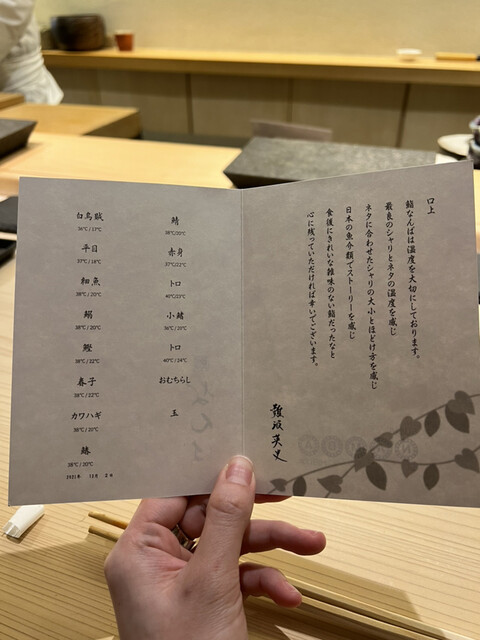 口上
鮨なんばは温度を大切にしております。
最良のシャリとネタの温度を感じ
ネタに合わせたシャリの大小とほどけ方を感じ
日本の魚介類でストーリーを感じ
食後にきれいな雑味のない鮨だったなと
心に残っていただければ幸いでございます。
難波英史
白烏賊
36℃/17℃
平目
37℃/18℃
細魚
38℃/20℃
鰯
38℃/20℃
鰹
38℃/22℃
春子
38℃/22℃
カワハギ
36℃/21℃
鰆
38℃/20℃
鯖
38℃/20℃
赤身
37℃/22℃
トロ
40℃/23℃
小鰭
36℃/19℃
トロ
40℃/24℃
おむちらし
玉